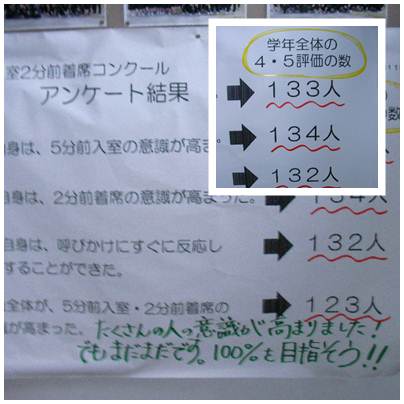 室2分前着席コンクール
アンケート結果
学年全体の
4・5評価の数
133人
134人
132人
自身は、5分前入室の意識が高ま
自身は、2分前着席の意識が高まった。
134人
自身は、呼びかけにすぐに反応し
することができた。
132人
全体が、5分前入室・2分前着席の
が高まった。
123人
たくさんの人の意識が高まりました!
でもまだまだです。100%を目指そう!!